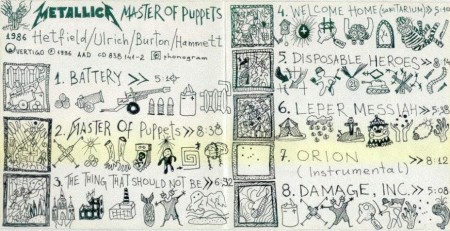 METALLICA MASTER OF PUPPETS
1986 Hetfield/Ulrich/Burton/Hammett
VERTIGO ℗ 1986 AAD CD 838 141-2 phonogram
1. BATTERY >> 5:10
2. MASTER OF PUPPETS >> 8:38
3. THE THING THAT SHOULD NOT BE >> 6:32
4. WELCOME HOME (SANITARIUM) >> 5:10
5. DISPOSABLE HEROES >> 8:14
6. LEPER MESSIAH >> 5:38
7. ORION >> 8:12
(Instrumental)
8. DAMAGE, INC. >> 5:08